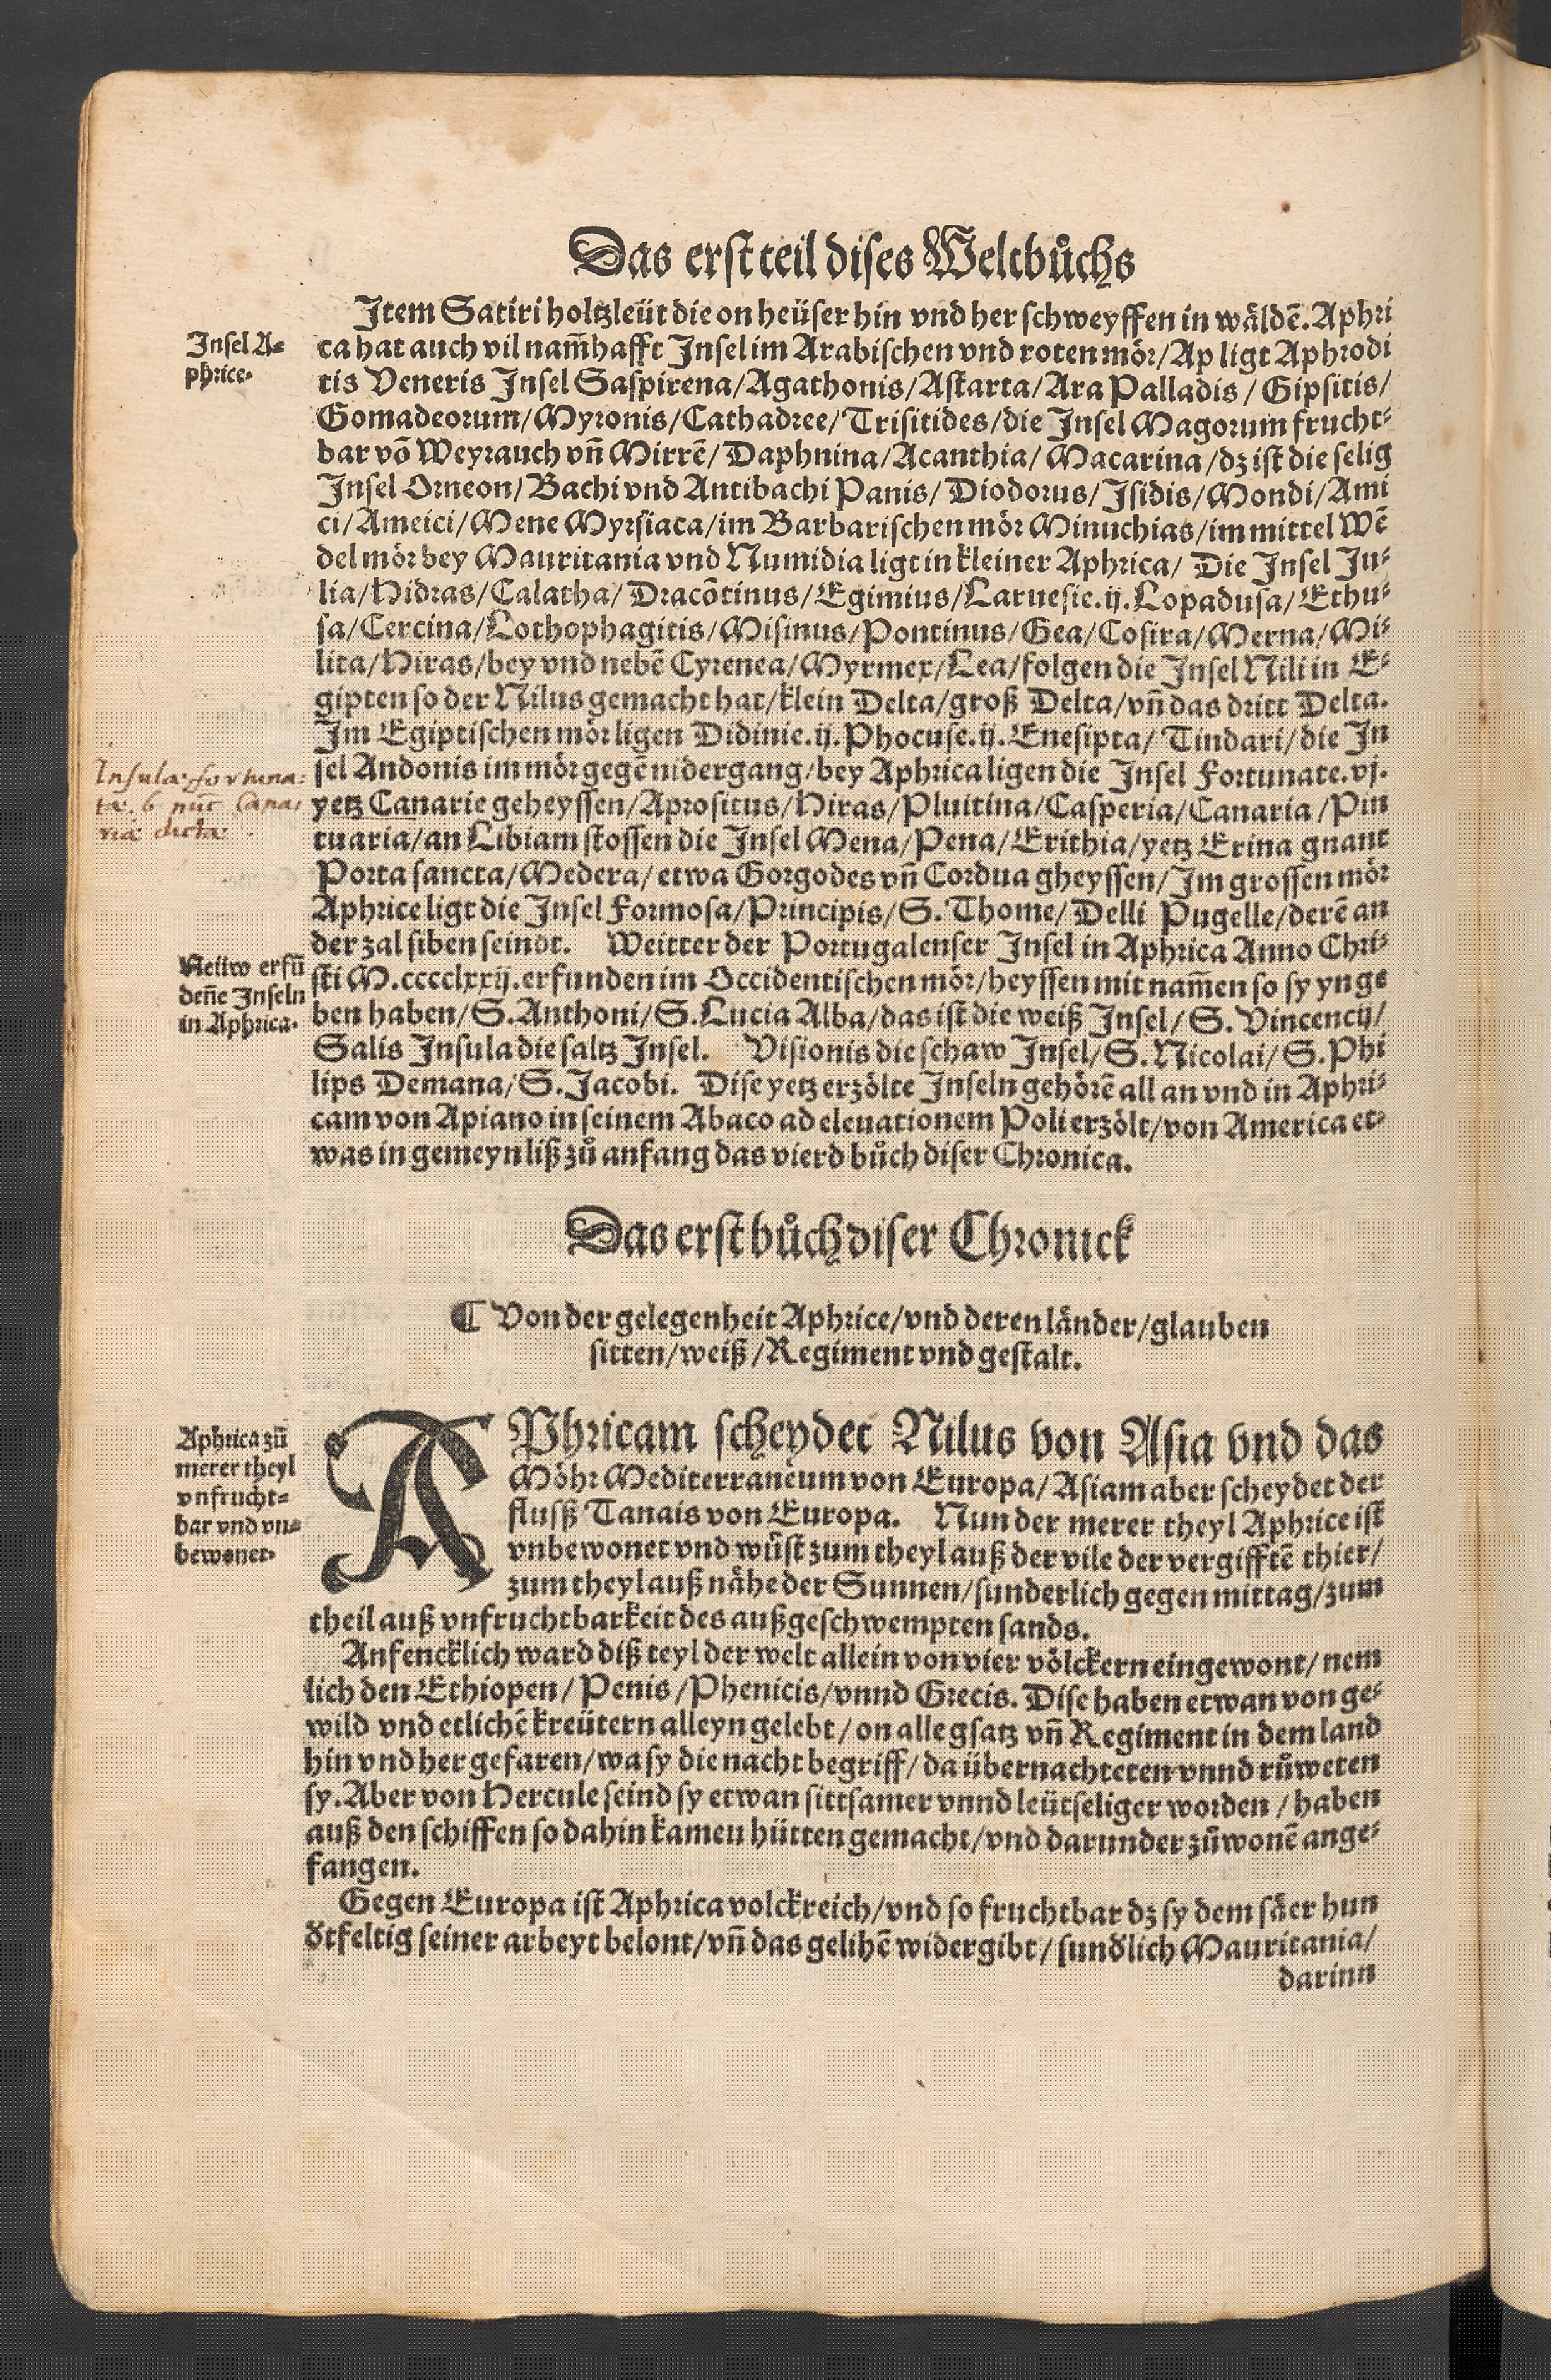 Das erst teil dises Weltbůchs
Item Satiri holtzleüt die on heüser hin vnd her schweyffen in wäldē. Aphri
Insel A=
phrice.
ca hat auch vil nam̃hafft Insel im Arabischen vnd roten mör/Ap ligt Aphrodi
tis Veneris Insel Saspirena/Agathonis/Astarta/Ara Palladis/Gipsitis/
Gomadeorum/Myronis/Cathadree/Trisitides/die Insel Magorum frucht=
bar võ Weyrauch vñ Mirrē/Daphnina/Acanthia/Macarina/dz ist die selig
Insel Orneon/Bachi vnd Antibachi Panis/Diodorus/Isidis/Mondi/Ami
ci/Ameici/Mene Myrsiaca/im Barbarischen mör Minuchias/im mittel Wē
del mör bey Mauritania vnd Numidia ligt in kleiner Aphrica/Die Insel Ju=
lia/Hidras/Calatha/Dracõtinus/Egimius/Laruesie.ij.Lopadusa/Ethu=
sa/Cercina/Lothophagitis/Misinus/Pontinus/Gea/Cosira/Merna/Mi=
lita/Hiras/bey vnd nebē Cyrenea/Myrmex/Lea/folgen die Insel Nili in E=
gipten so der Nilus gemacht hat/klein Delta/groß Delta/vñ das dritt Delta.
Im Egiptischen mör ligen Didinie.ij.Phocuse.ij.Enesipta/Tindari/die In
Insulæ fortuna:
tæ. 6 nūc Cana:
riæ dictæ.
sel Andonis im mör gegē nidergang/bey Aphrica ligen die Insel Fortunate.vj.
yetz Canarie geheyssen/Aprositus/Hiras/Pluitina/Casperia/Canaria/Pin
tuaria/an Libiam stossen die Insel Mena/Pena/Erithia/yetz Erina gnant
Porta sancta/Medera/etwa Gorgodes vñ Cordua gheyssen/Im grossen mör
Aphrice ligt die Insel Formosa/Principis/S. Thome/Delli Pugelle/derē an
der zal siben seindt. Weitter der Portugalenser Insel in Aphrica Anno Chri=
Neüw erfũ
deñe Inseln
in Aphrica.
sti M.cccclxxij.erfunden im Occidentischen mör/heyssen mit nam̃en so sy ynge
ben haben/S.Anthoni/S.Lucia Alba/das ist die weiß Insel/S. Vincencij/
Salis Insula die saltz Insel. Visionis die schaw Insel/S. Nicolai/S. Phi
lips Demana/S. Jacobi. Dise yetz erzölte Inseln gehörē all an vnd in Aphri=
cam von Apiano in seinem Abaco ad eleuationem Poli erzölt/von America et=
was in gemeyn liß zů anfang das vierd bůch diser Chronica.
Das erst bůch diser Chronick
¶ Von der gelegenheit Aphrice/vnd deren länder/glauben
sitten/weiß/Regiment vnd gestalt.
Aphrica zũ
merer theyl
vnfrucht=
bar vnd vn=
bewonet.
APhricam scheydet Nilus von Asia vnd das
Möhr Mediterraneum von Europa/Asiam aber scheydet der
flusß Tanais von Europa. Nun der merer theyl Aphrice ist
vnbewonet vnd wüst zum theyl auß der vile der vergifftē thier/
zum theyl auß nähe der Sunnen/sunderlich gegen mittag/zum
theil auß vnfruchtbarkeit des außgeschwempten sands.
Anfencklich ward diß teyl der welt allein von vier völckern eingewont/nem
lich den Ethiopen/Penis/Phenicis/vnnd Grecis. Dise haben etwan von ge=
wild vnd etlichē kreütern alleyn gelebt/on alle gsatz vñ Regiment in dem land
hin vnd her gefaren/wa sy die nacht begriff/da übernachteten vnnd růweten
sy. Aber von Hercule seind sy etwan sittsamer vnnd leütseliger worden/haben
auß den schiffen so dahin kameu hütten gemacht/vnd darunder zůwonē ange=
fangen.
Gegen Europa ist Aphrica volckreich/vnd so fruchtbar dz sy dem säer hun
dtfeltig seiner arbeyt belont/vñ das gelihē widergibt/sundlich Mauritania/
darinn